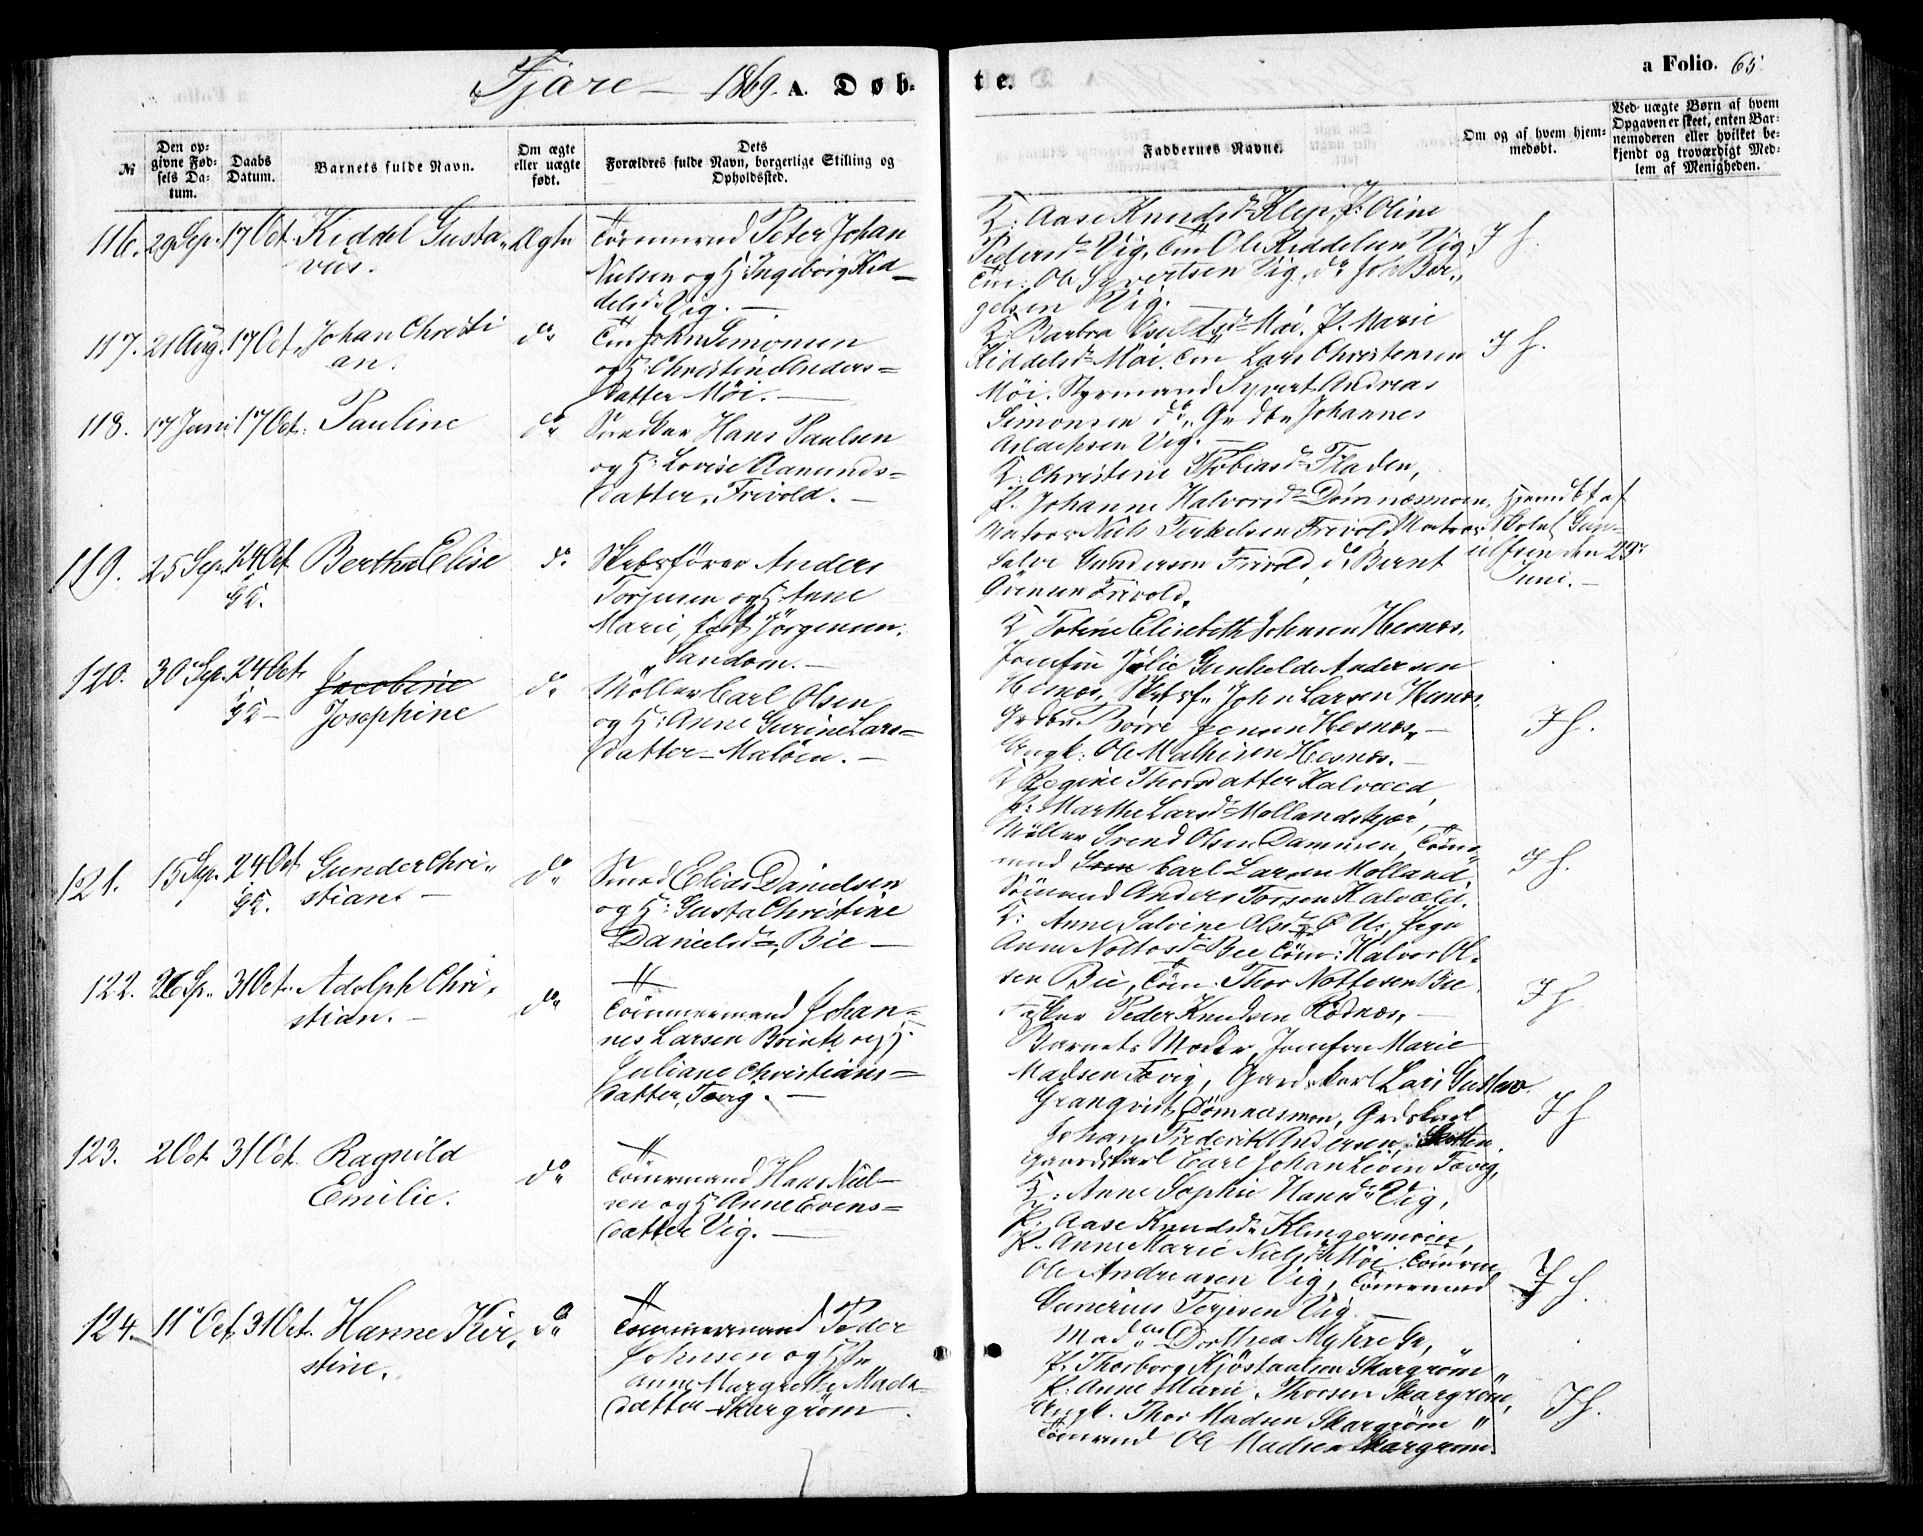 Fjære — 1869. A. Døb-
te.
a Folio. 65
№
Den op-
givne Fød-
sels Da-
tum.
Daabs
Datum.
Barnets fulde Navn.
Om ægte
eller uægte
født.
Dets
Forældres fulde Navn, borgerlige Stilling og
Opholdssted.
Faddernes Navne.
Om og af hvem hjem-
medøbt.
Ved uægte Børn af hvem
Opgaven er skeet, enten Bar-
nemoderen eller hvilket be-
kjendt og troværdigt Med-
lem af Menigheden.
116. 29 Sep. 17 Oct. Kiddel Gusta-
vus.
Ægte
Tömmermd Peter Johan
Nielsen og H: Ingeborg Kid-
delsdr Vig. —
K: Aase Knudsdr Klep, P. Oline
Pedersdr Vig, Töm Ole Kiddelsen Vig,
Töm: Ole Syvertsen Vig, do Joh Ber-
gelsen Vig. —
I h.
117. 21 Aug. 17 Oct. Johan Christi
an.
do
Töm John Simonsen
og H: Christine Anders-
datter Möi. —
K: Barbra dr Möi. P. Marie
Kiddelsdr Möi. Töm Lars Christensen
Möi. Styrmand Syvert Andreas
Simonsen do, Grdbr Johannes
Vig. —
I h.
118. 17 Juni 17 Oct. Pauline
do
Snedker Hans Paulsen
og H: Lovise Aamunds-
datter, Frivold. —
K: Christine Thobiasdr Fladen,
P. Johanne Halvorsdr Dömmesmoen,
Matros Niels Terkelsen Frivold, Matros
Salve Gundersen Frivold, do Bernt
Frivold.
Hjemdbt af
den 29
Juni. —
119. 25 Sep. 24 Oct.
Bertha Elise
do
Skibsfører Anders
Torjusen og H: Anne
Marie, født Jörgensen,
Sandom. —
K Tobine Elisebeth Johnsen Hesnes,
Jomfru Julie Gunhilde Andersen
Hesnes, Skibsf. John Larsen Hesnes,
Grdbr. Börre Jensen Hesnes, —
Ungk: Ole Mathisen Hesnes. —
I h.
120. 30 Sep. 24 Oct.
Jacobine
Josephine
do
Möller Carl Olsen
og H: Anne Gurine Lars-
datter — Malöen. —
K Regine Thorsdatter Kalvæld,
P: Marthe Larsdr Mollandskjær,
Möller Svend Olsen Dammen, Töm-
mmd Carl Larsen Molland,
Sömand Anders Torsen Kalvæld.
I h.
121. 15 Sep. 24 Oct
Gunder Chri-
stian. —
do
Smed Elias Danielsen
og H: Gusta Christine
Danielsdr, Bie —
K: Anne Salvine Olsdr Pige
Anne Nottosdr Bie Töm: Halvor Ol-
sen Bie, Töm. Thor Nottosen Bie,
Peder Knudsen Rödnes, —
I h
122. 26 Sp. 31 Oct. Adolph Chri-
stian. —
do
Tömmermand Johan-
nes Larsen og H.
Juliane Christians-
datter, Tævig. —
Barnets Moder, Jomfru Marie
Madsen Tævig, Gaardskarl Lars Gustav
Granqvist, Dömmesmoen, Grdskarl
Johan Frederik Andersen,
Gaardskarl Carl Johan Tævig,
I h
123. 2 Oct. 31 Oct. Ragnild
Emilie.
do
Tömrmand Hans Niel-
sen og H Anne Evens-
datter Vig. —
K: Anne Sophie Hansdr Vig,
P. Aase Knudsdr Klingermoien,
P. Anne Marie Nielsdr Möi Tömrm
Ole Andreasen Vig, Tömrmand
Gunerius Terjesen Vig —
I h.
124. 11 Oct 31 Oct. Hanne Kir-
stine.
do
Tömmermand Peder
Johnsen og H
Anne Margrethe Mads-
datter — Skargröm.
Mad Dorthea Myhre Gr,
P. Thorborg Kjöstaulsen Skargröm
P. Anne Marie Thorsen Skargröm,
Ungk. Thor Madsen Skargröm
Tömrmand Ole Madsen Skargröm.
I h.